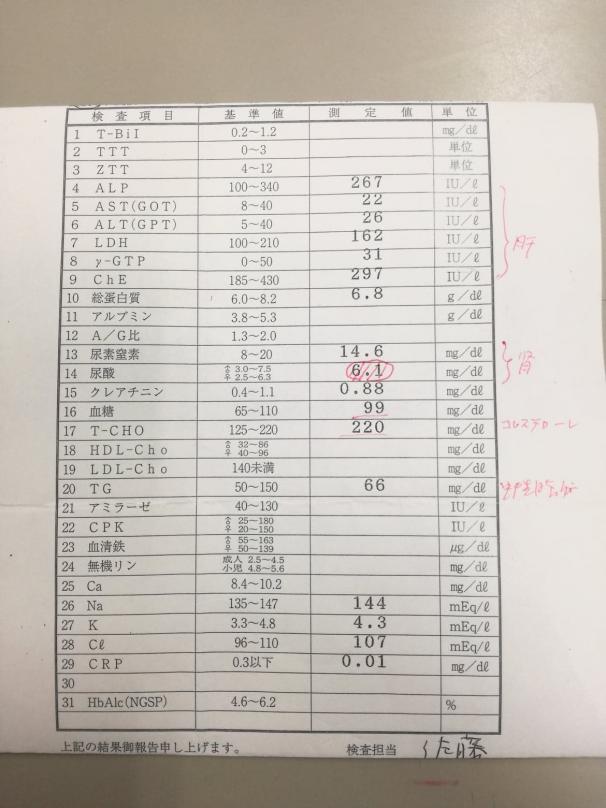 検査項目 基準値 測定値 単位
1 T-BiI 0.2～1.2 mg/dℓ
2 TTT 0～3 単位
3 ZTT 4～12 単位
4 ALP 100～340 267 IU/ℓ
5 AST(GOT) 8～40 22 IU/ℓ
6 ALT(GPT) 5～40 26 IU/ℓ
7 LDH 100～210 162 IU/ℓ
8 γ-GTP 0～50 31 IU/ℓ
9 ChE 185～430 297 IU/ℓ
肝
10 総蛋白質 6.0～8.2 6.8 g/dℓ
11 アルブミン 3.8～5.3 g/dℓ
12 A/G比 1.3～2.0
13 尿素窒素 8～20 14.6 mg/dℓ
14 尿酸 ♂ 3.0～7.5 ♀ 2.5～6.3 6.1 mg/dℓ
腎
15 クレアチニン 0.4～1.1 0.88 mg/dℓ
16 血糖 65～110 99 mg/dℓ
17 T-CHO 125～220 220 mg/dℓ コレステロール
18 HDL-Cho ♂ 32～86 ♀ 40～96 mg/dℓ
19 LDL-Cho 140未満 mg/dℓ
20 TG 50～150 66 mg/dℓ
21 アミラーゼ 40～130 IU/ℓ
22 CPK ♂ 25～180 ♀ 20～150 IU/ℓ
23 血清鉄 ♂ 55～163 ♀ 50～139 μg/dℓ
24 無機リン 成人 2.5～4.5 小児 4.8～5.6 mg/dℓ
25 Ca 8.4～10.2 mg/dℓ
26 Na 135～147 144 mEq/ℓ
27 K 3.3～4.8 4.3 mEq/ℓ
28 Cℓ 96～110 107 mEq/ℓ
29 CRP 0.3以下 0.01 mg/dℓ
30
31 HbAlc(NGSP) 4.6～6.2 %
上記の結果御報告申し上げます。 検査担当 佐藤